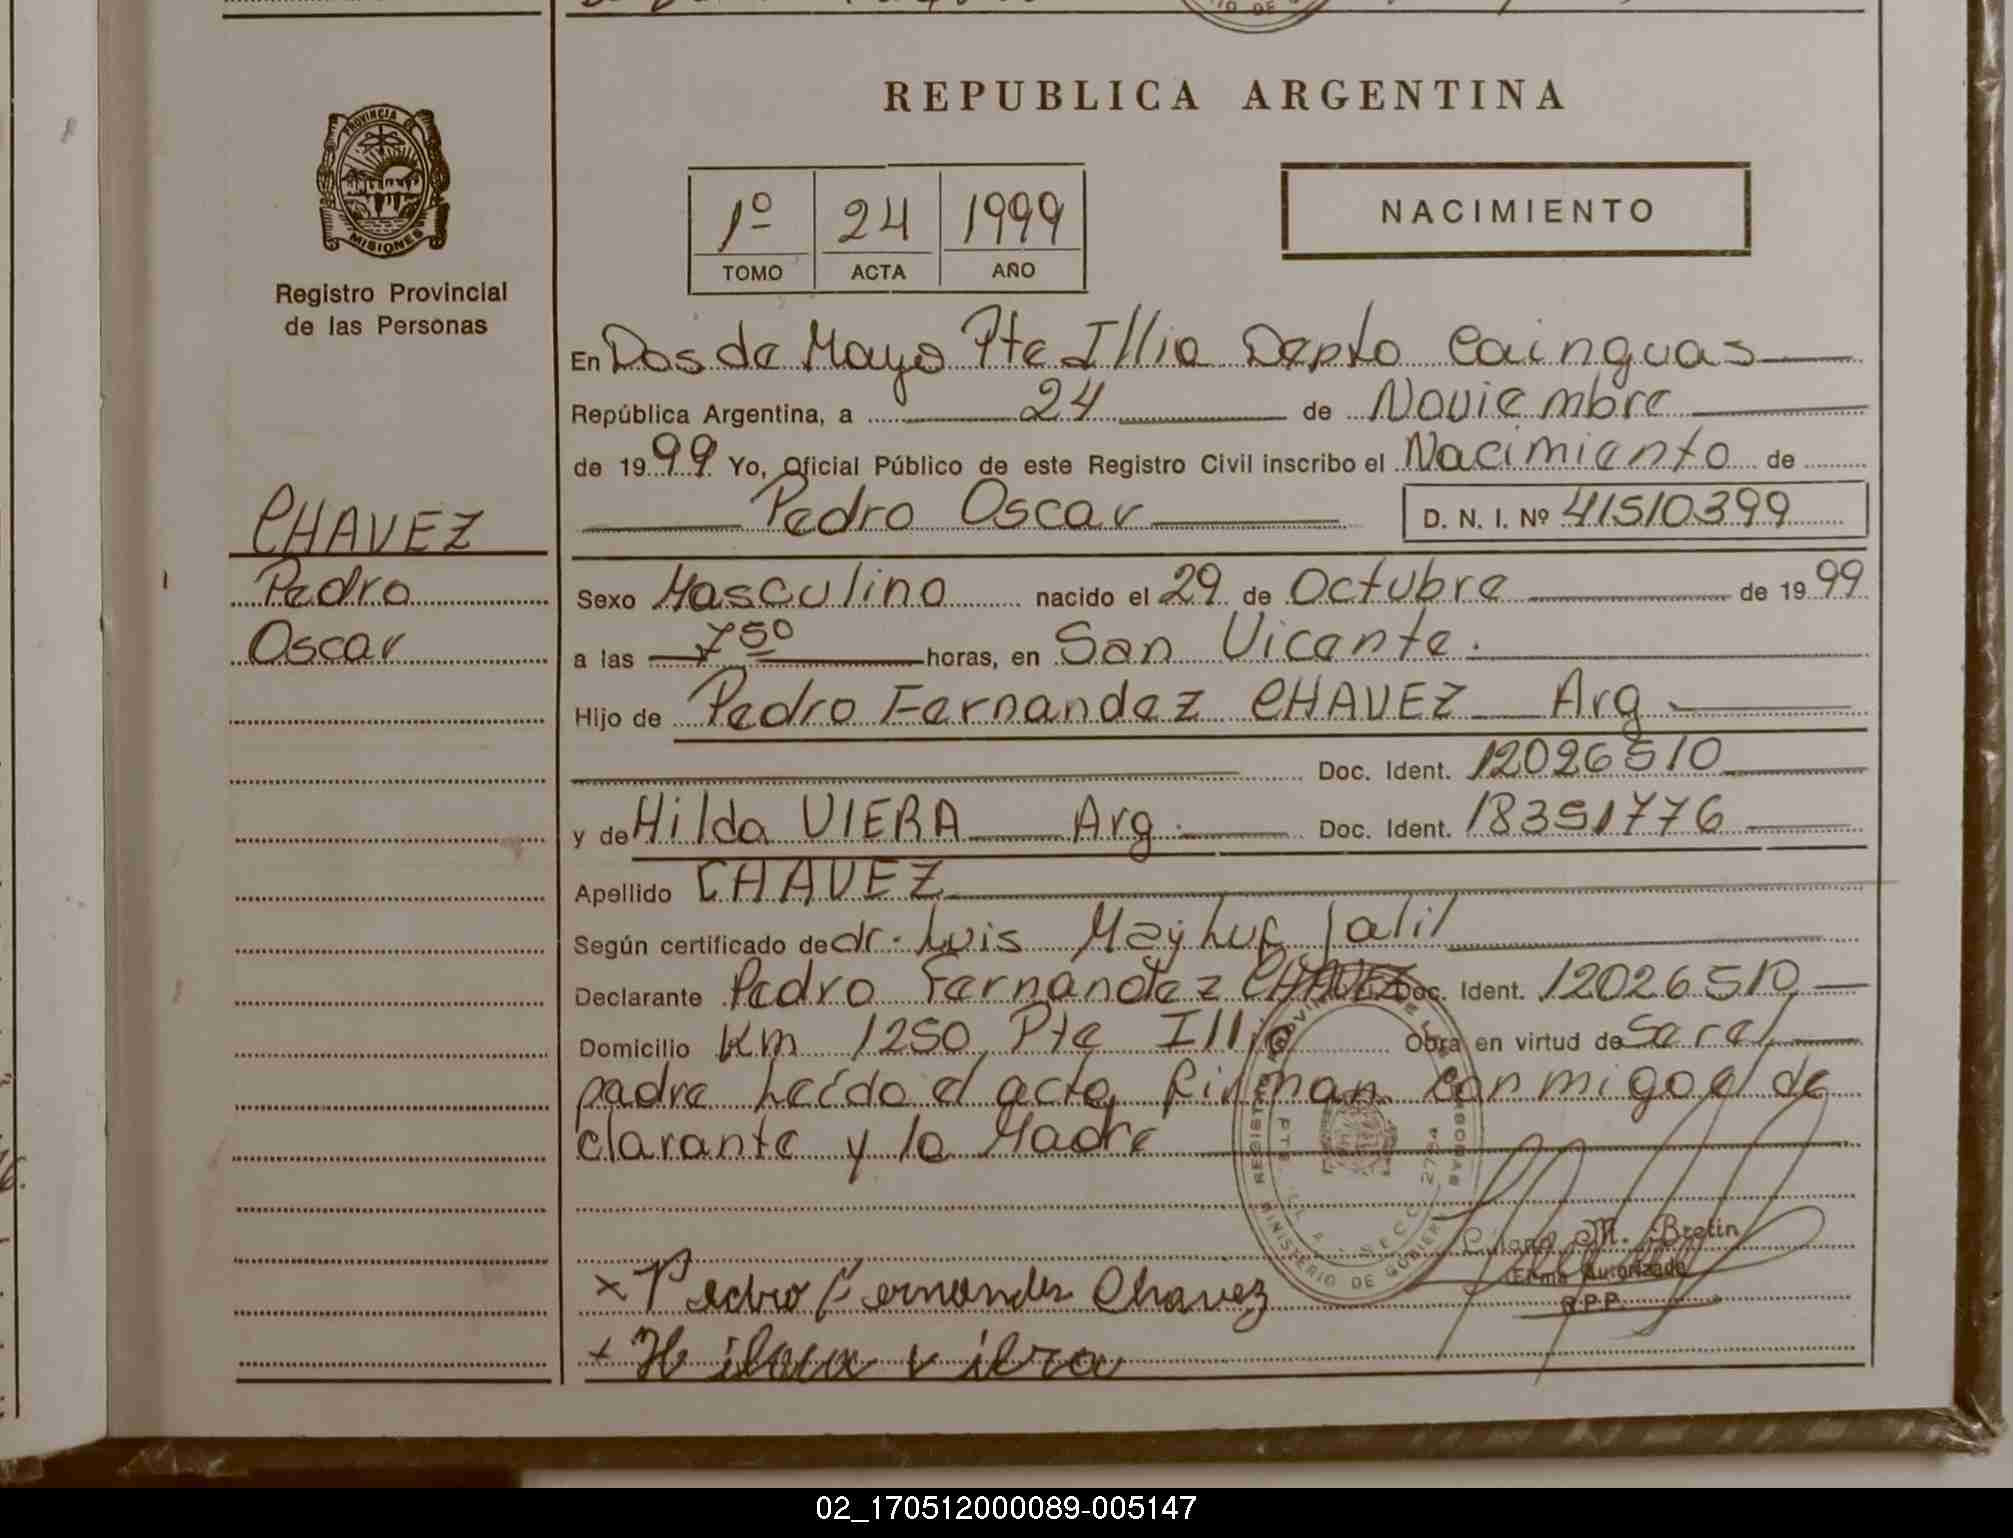 REPUBLICA ARGENTINA
PROVINCIA DE
MISIONES
Registro Provincial
de las Personas
1º 24 1999
TOMO ACTA AÑO
NACIMIENTO
En Dos de Mayo Pte Illia Depto Cainguas
República Argentina, a 24 de Noviembre
de 1999 Yo, Oficial Público de este Registro Civil inscribo el Nacimiento de
Pedro Oscar D. N. I. Nº 41510399
CHAVEZ
Pedro
Oscar
Sexo Masculino nacido el 29 de Octubre de 1999
a las 7 50 horas, en San Vicente.
Hijo de Pedro Fernandez CHAVEZ Arg
Doc. Ident. 12026510
y de Hilda VIERA Arg. Doc. Ident. 18351776
Apellido CHAVEZ
Según certificado de dr. Luis Jalil
Declarante Pedro Fernandez CHAVEZ Doc. Ident. 12026510
Domicilio Km 1250 Pte Illia Obra en virtud de Ser el
padre Leído el acta Firman conmigo el de
clarante y la Madre
MINISTERIO DE GOBIERNO
SECC. 2724
M. Bretin
Firma Autorizada
R.P.P.
x Pedro Fernandez Chavez
x Hilda viera
02_170512000089-005147